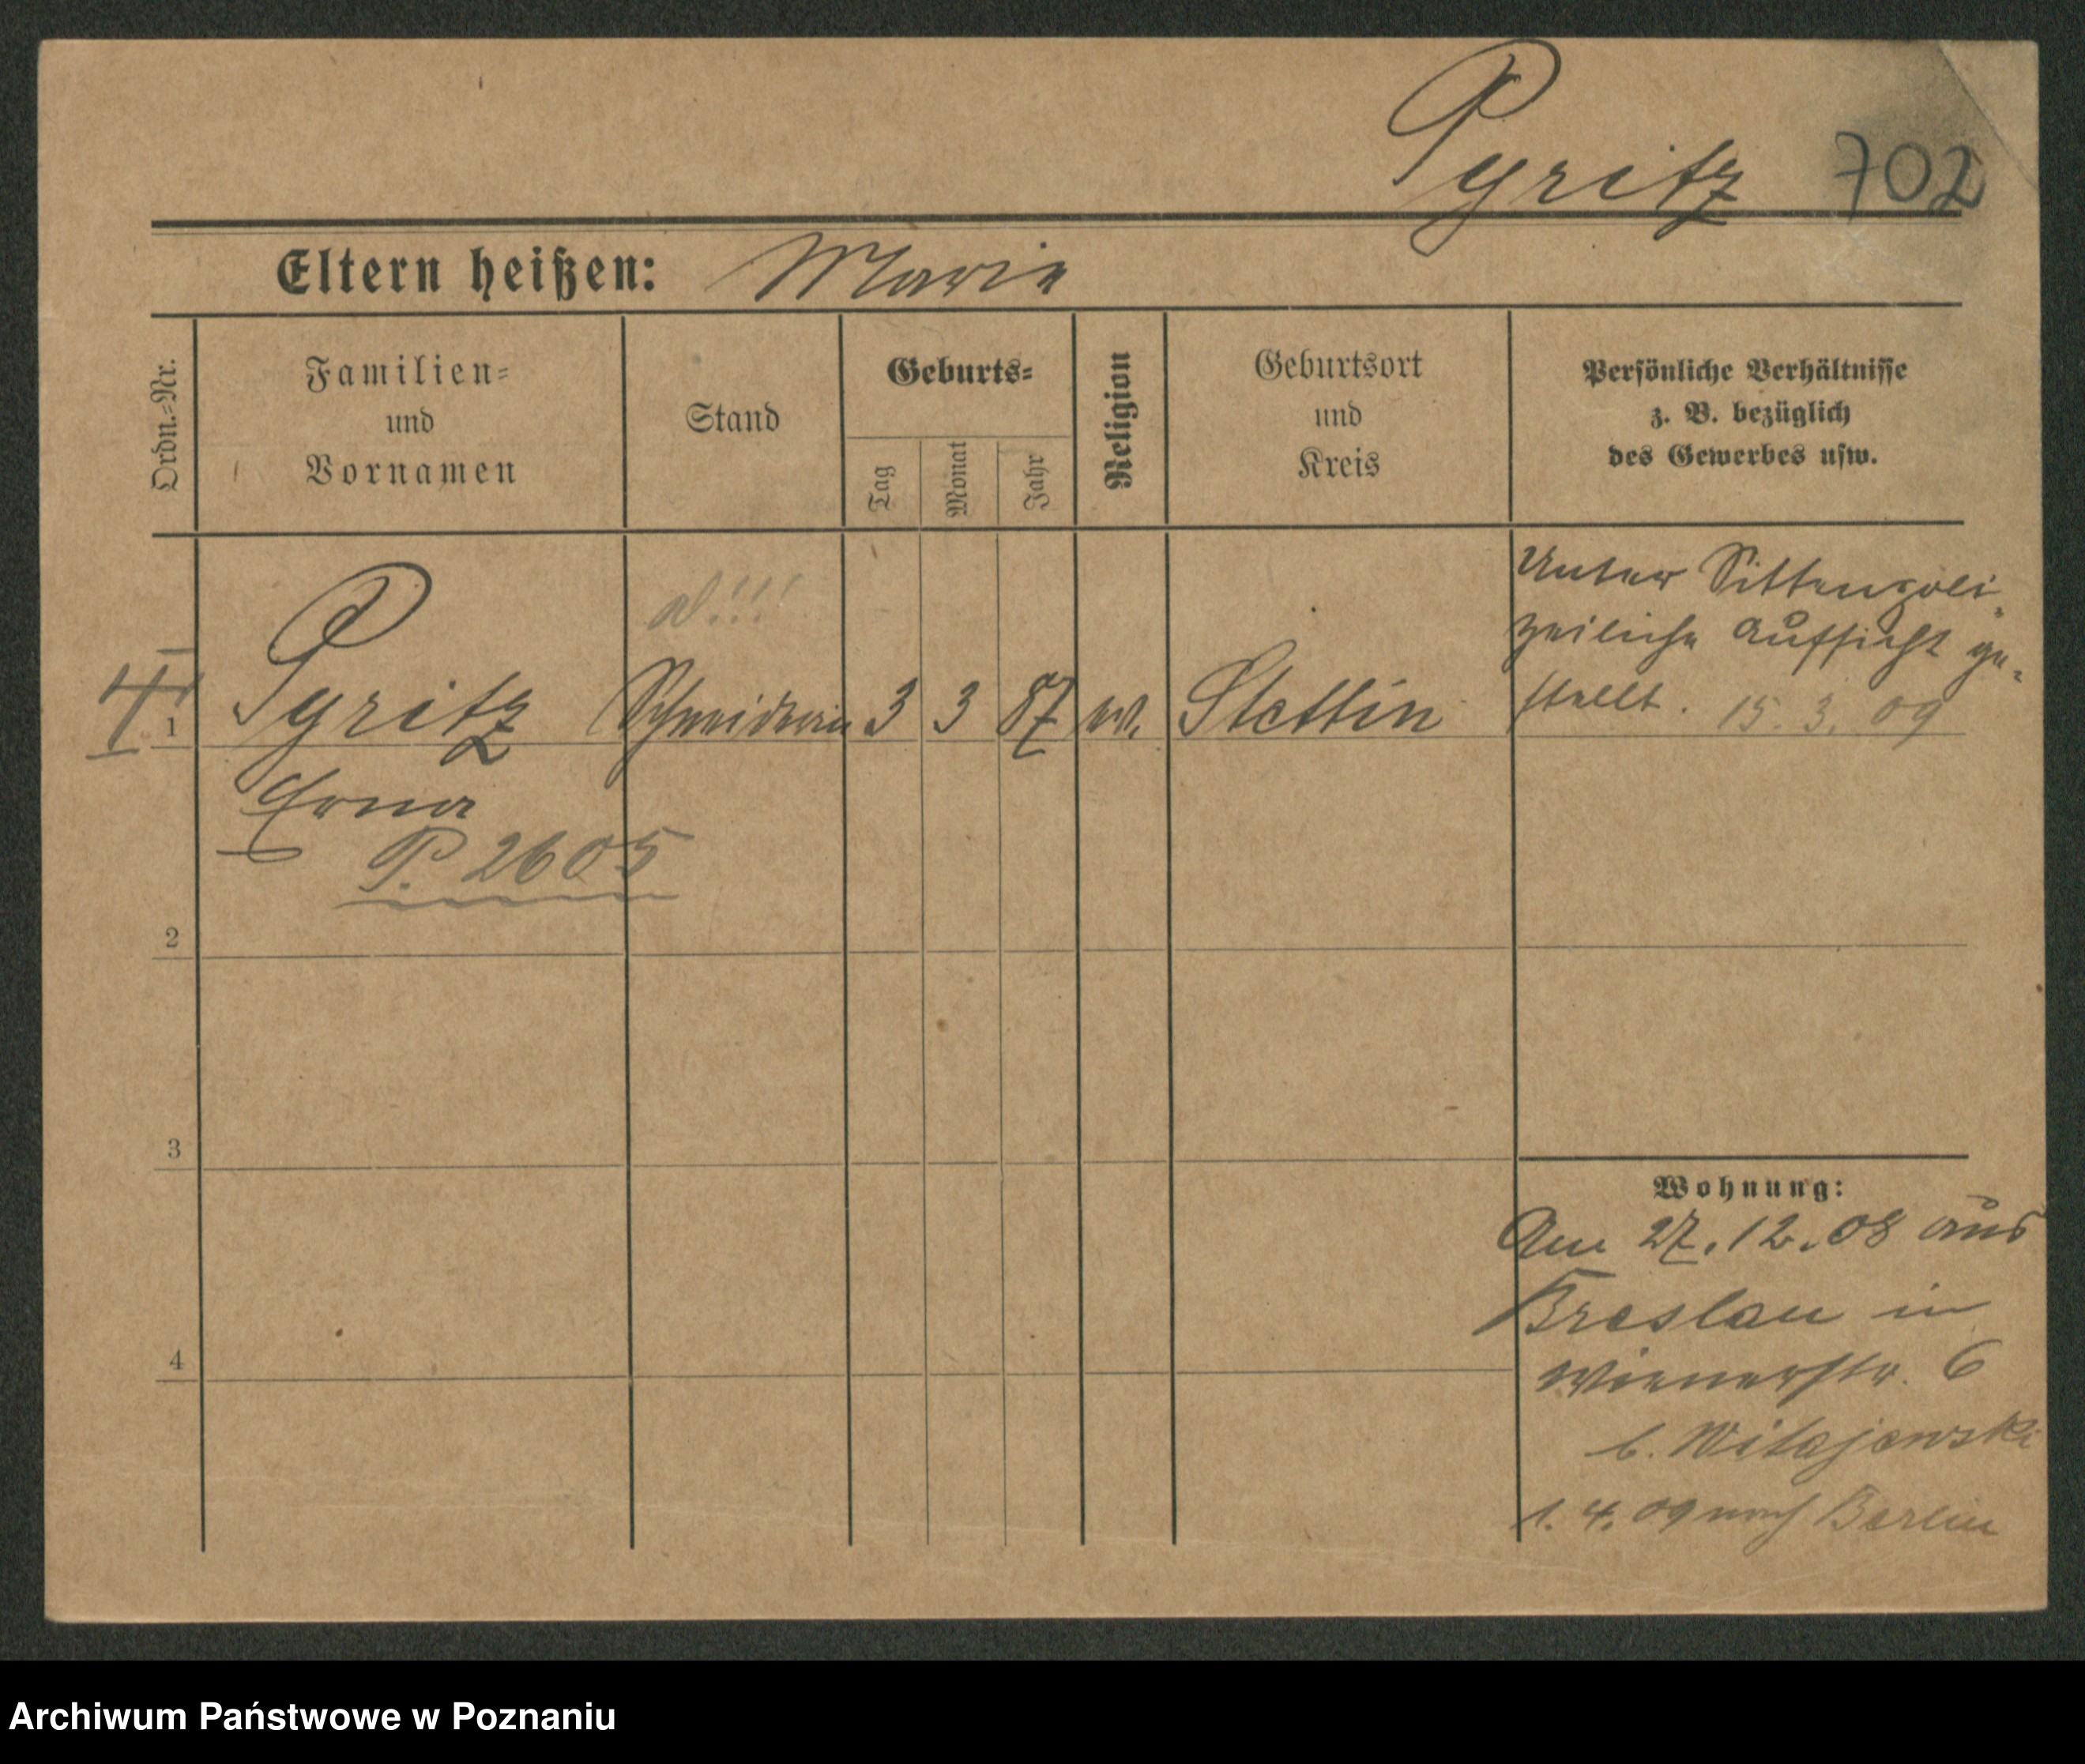 Pyritz 702
Eltern heißen: Marie
Ordn.=Nr.
Familien=
und
Vornamen
Stand
Geburts=
Tag
Monat
Jahr
Religion
Geburtsort
und
Kreis
Persönliche Verhältnisse
z. B. bezüglich
des Gewerbes usw.
1
Pyritz
Erna
P. 2605
Schneiderin
3
3
87
ev.
Stettin
Unter Sittenpoli-
zeiliche Aufsicht ge-
stellt. 15. 3. 09
2
3
4
Wohnung:
Am 27. 12. 08 aus
Breslau in
Wienerstr. 6
b. Witajewski
1. 4. 09 nach Berlin
Archiwum Państwowe w Poznaniu